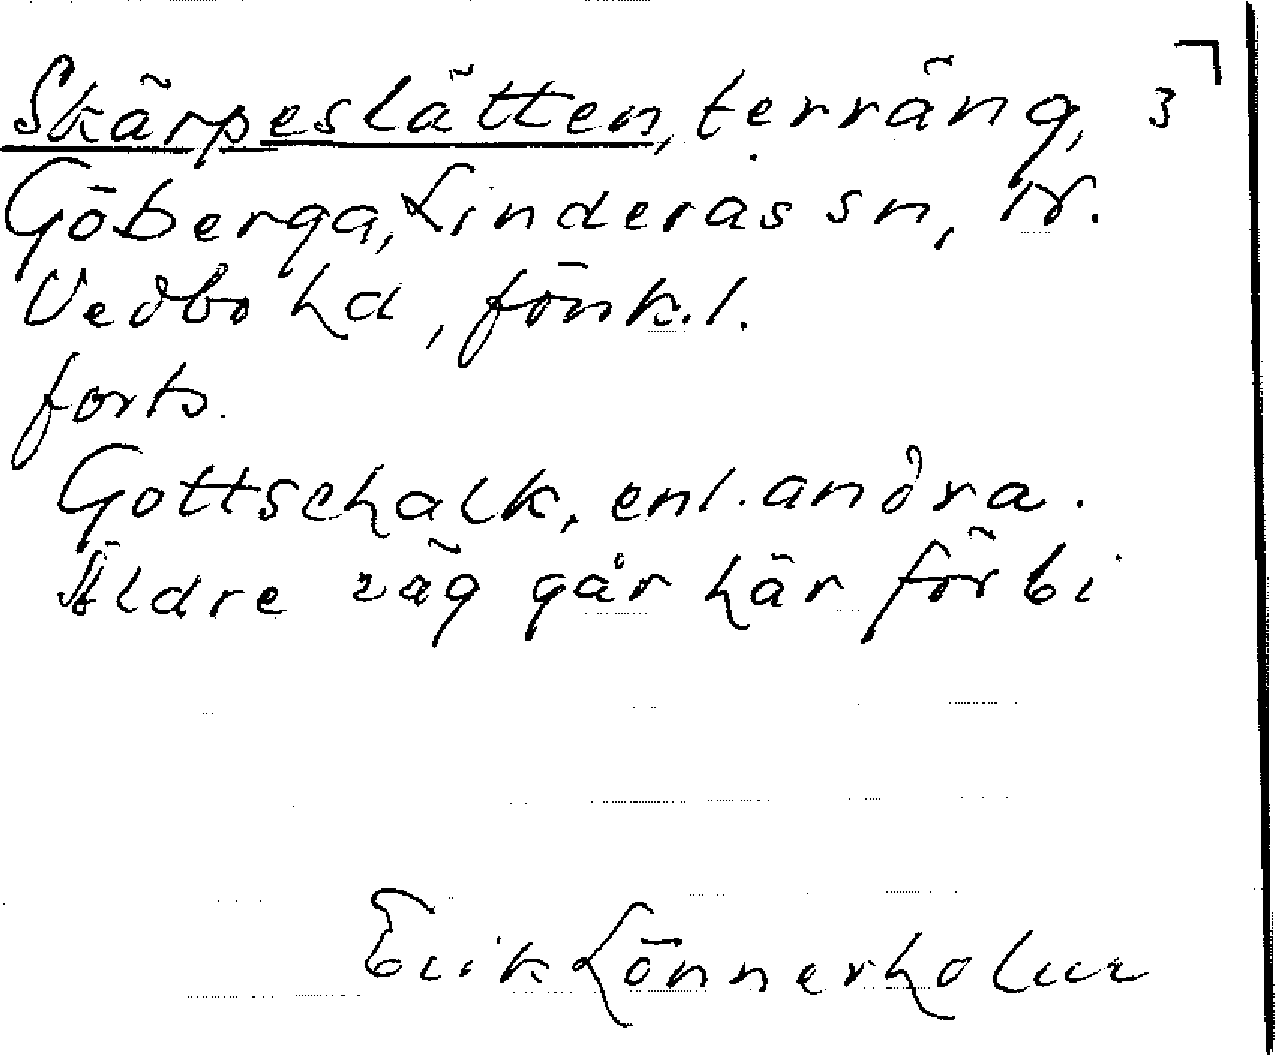 Skärpeslätten, terräng, 3
Göberga, Linderås sn, N.
Vedbo hd, Jönk. l.
forts.
Gottschalk, enl. andra.
Äldre väg går här förbi
Erik Lönnerholm